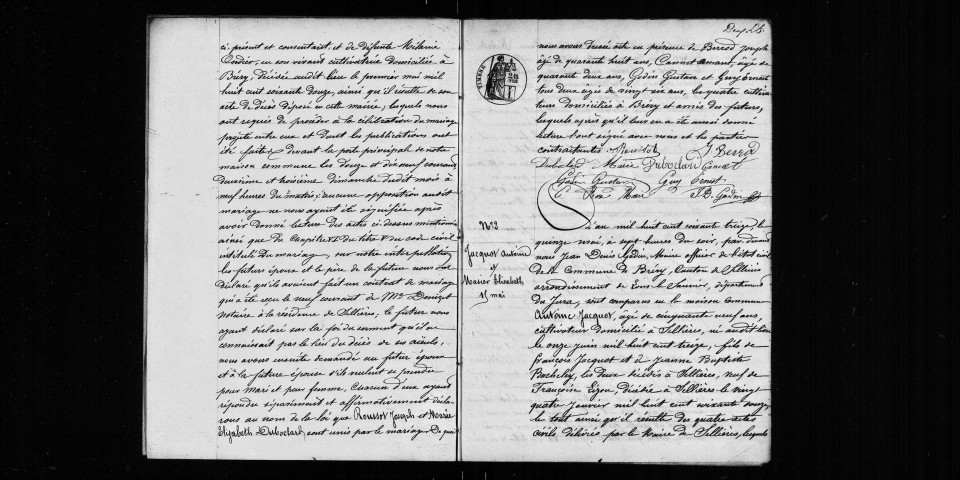 ci présent et consentant, et de défunte Mélanie
Cordier, en son vivant cultivatrice domiciliée à
Bréry, décédée audit lieu le premier mai mil
huit cent soixante douze, ainsi qu'il résulte de son
acte de décès déposé en cette mairie, lesquels nous
ont requis de procéder à la célébration du mariage
projeté entre eux et dont les publications ont
été faites devant la porte principale de notre
maison commune les douze et dix neuf courant
deuxième et troisième dimanche dudit mois à
neuf heures du matin; aucune opposition audit
mariage ne nous ayant été signifiée, après
avoir donné lecture des actes ci-dessus mentionnés
ainsi que du chapitre VI du titre V du code civil
intitulé du mariage, sur notre interpellation
les futurs époux et le père de la future nous ont
déclaré qu'ils avaient fait un contrat de mariage
qui a été reçu le neuf courant de Me
notaire à la résidence de Sellières, le futur nous
ayant déclaré sur la foi du serment qu'il ne
connaissait pas le lieu du décès de ses aïeuls,
nous avons ensuite demandé au futur époux
et à la future épouse s'ils veulent se prendre
pour mari et pour femme, chacun d'eux ayant
répondu séparément et affirmativement décla-
rons au nom de la loi que Roussot Joseph et Marie
Elizabeth Duboclard sont unis par le mariage. De quoi
nous avons dressé acte en présence de Berrod Joseph
âgé de quarante huit ans, Cannet amant, âgé de
quarante deux ans, Godin Gustave et Guy Ernest
tous deux âgés de vingt six ans, les quatre cultiva-
teurs domiciliés à Bréry et amis des futurs,
lesquels après qu'il leur en a été aussi donné
lecture tout signé avec nous et les parties
contractantes Roussot J Berrod
Duboclard Marie Duboclard Cannet
Godin Gustave Guy Ernest
J. B. Godin
N° 3
Jacquot Antoine
et
Marier Elisabeth
15 mai
L'an mil huit cent soixante treize, le
quinze mai, à sept heures du soir, par devant
nous Jean Denis Godin, Maire officier de l'état civil
de la Commune de Bréry, Canton de Sellières
arrondissement de Lons le Saunier, département
du Jura, sont comparus en la maison commune
Antoine Jacquot, âgé de cinquante neuf ans,
cultivateur domicilié à Sellières, né audit lieu
le onze juin mil huit cent treize, fils de
François Jacquot et de Jeanne Baptiste
Bacheley, les deux décédés à Sellières, veuf de
Françoise, décédée à Sellières le vingt
quatre janvier mil huit cent soixante douze,
le tout ainsi qu'il résulte de quatre actes
civils délivrés par le Maire de Sellières, lesquels